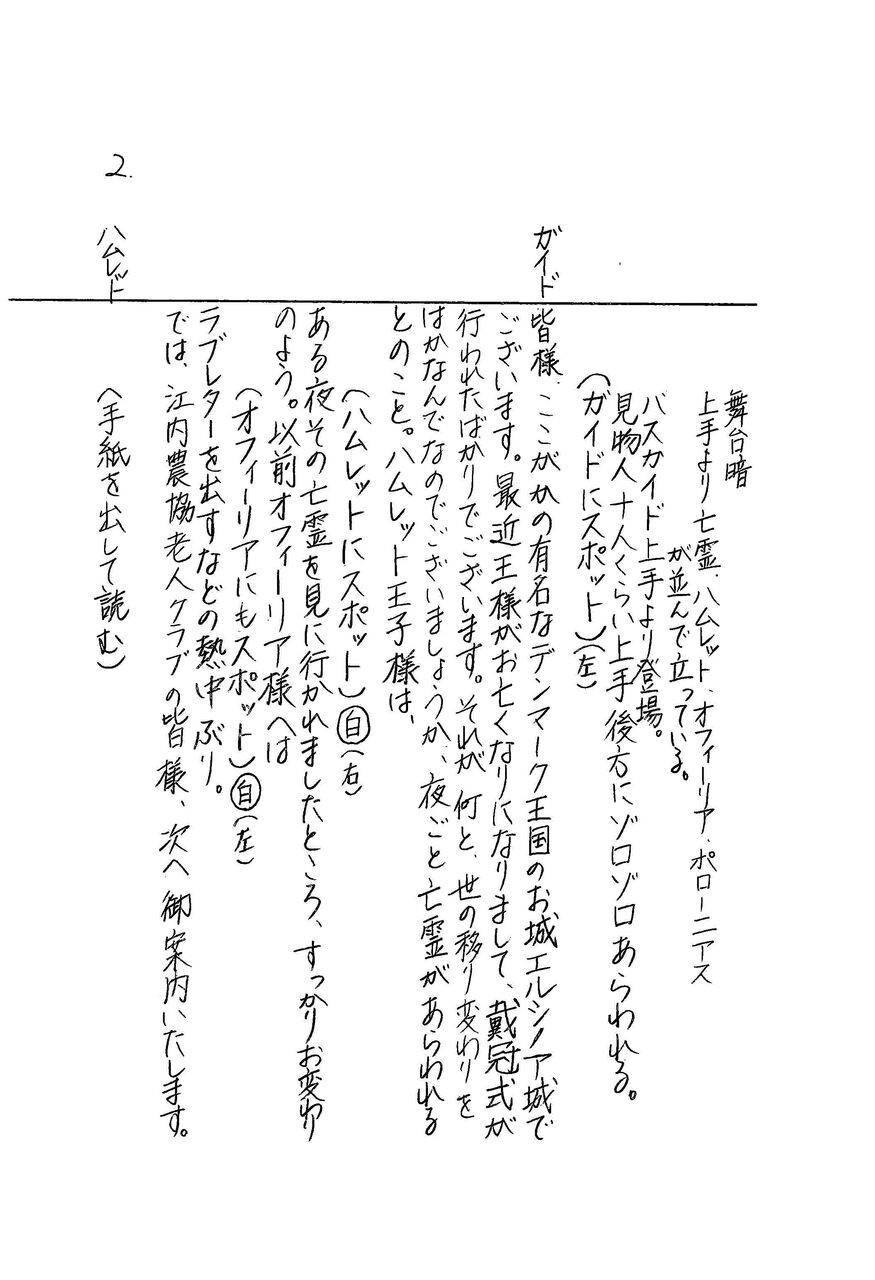 舞台暗
上手より亡霊、ハムレット、オフィーリア、ポローニアス
が並んで立っている。
バスガイド上手より登場。
見物人十人くらい上手後方にゾロゾロあらわれる。
(ガイドにスポット)(左)
ガイド 皆様、ここがかの有名なデンマーク王国のお城エルシノア城で
ございます。最近王様がお亡くなりになりまして、戴冠式が
行われたばかりでございます。それが何と、世の移り変わりを
はかなんでなのでございましょうか、夜ごと亡霊があらわれる
とのこと。ハムレット王子様は、
(ハムレットにスポット)自(右)
ある夜その亡霊を見に行かれましたところ、すっかりお変わり
のよう。以前オフィーリア様へは
(オフィーリアにもスポット)自(左)
ラブレターを出すなどの熱中ぶり。
では、江内農協老人クラブの皆様、次へ御案内いたします。
2. ハムレット (手紙を出して読む)